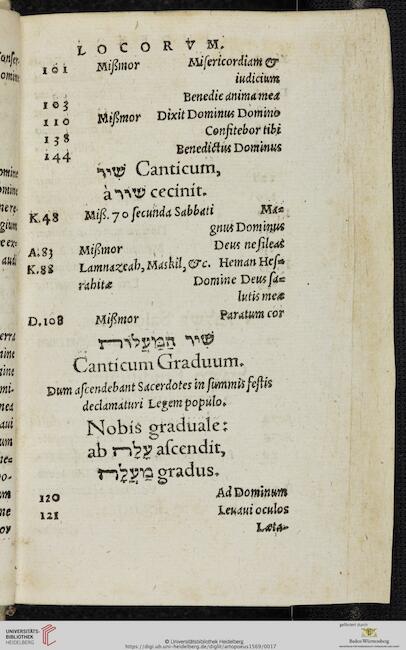 LOCORVM.
101 Mißmor Misericordiam &
iudicium
103 Benedic anima mea
110 Mißmor Dixit Dominus Domino
138 Confitebor tibi
144 Benedictus Dominus
שִׁיר Canticum,
à שׁוּר cecinit.
K.48 Miß. 70 secunda Sabbati Ma-
gnus Dominus
A.83 Mißmor Deus ne sileas
K.88 Lamnazeah, Maskil, &c. Heman Hes-
rahitæ Domine Deus sa-
lutis meæ
D.108 Mißmor Paratum cor
שִׁיר הַמַּעֲלוֹת
Canticum Graduum.
Dum ascendebant Sacerdotes in summis festis
declamaturi Legem populo.
Nobis graduale:
ab עָלָה ascendit,
מַעֲלָה gradus.
120 Ad Dominum
121 Leuaui oculos
Læta-
UNIVERSITÄTS-
BIBLIOTHEK
HEIDELBERG
© Universitätsbibliothek Heidelberg
https://digi.ub.uni-heidelberg.de/diglit/artopoeus1569/0017
gefördert durch
Baden-Württemberg